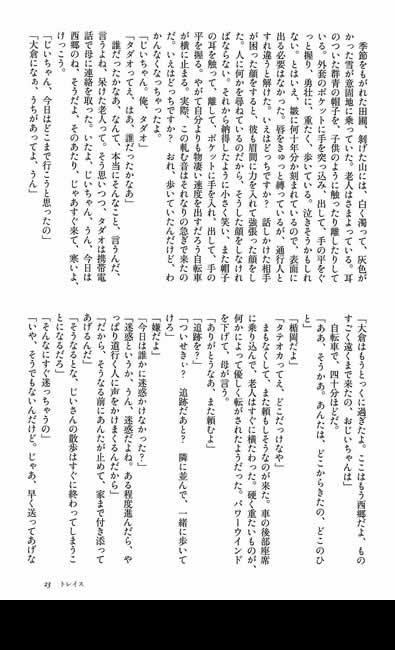 季節をもがれた田圃、剝げた山には、白く濁って、灰色が
かった雪が意固地に乗っていた。老人はさまよっている。耳
のついた群青の帽子を、子供のように触ったり離したりして
いる。外套のポケットに手を突っ込み、出して、手の平をぐ
っと握り、勇壮に、重たく、歩いている。泣きそうかもしれ
ない。とはいえ、皺に何十年分か刻まれているので、表面に
出る必要はなかった。唇をきゅっと縛っているが、通行人と
すれ違うと解けた。いえはどっちですか？　話しかけた相手
が困った顔をすると、彼も眉間に力を入れて強張った顔をし
た。人に何かを尋ねているのだから、そうした顔をしなけれ
ばならない。それから納得したように小さく笑い、また帽子
の耳を触って、離して、ポケットに手を入れ、出して、手の
平を握る。やがて自分よりも物凄い速度を出すだろう自転車
が横に止まる。実際、この軋む音はそれなりの急ぎで来たの
だ。いえはどっちですか？　おれ、歩いていたんだけど、わ
かんなくなっちゃったよ。
「じいちゃん。俺、タダオ」
「タダオってえ、はあ、誰だったかなあ」
　誰だったかなあ、なんて、本当にそんなこと、言うんだ、
言うよね、呆けた老人って。そう思いつつ、タダオは携帯電
話で母に連絡を取った。いたよ、じいちゃん、うん、今日は
西郷のね、そうだよ、そのあたり、じゃあすぐ来て、寒いよ、
けっこう。
「じいちゃん、今日はどこまで行こうと思ったの」
「大倉になぁ、うちがあってよ、うん」
「大倉はもうとっくに過ぎたよ。ここはもう西郷だよ、もの
すごく遠くまで来たの、おじいちゃんは」
　自転車で、四十分ほどだ。
「ああ、そうかあ。あんたは、どこからきたの、どこのひ
と」
「楯岡だよ」
「タテオカってえ、どこだっけなや」
　まもなくして、また頼もしそうなのが来た。車の後部座席
に乗り込んで、老人はすぐに横たわった。硬く重たいものが、
何かによって優しく転がされたようだった。パワーウインド
を下げて、母が言う。
「ありがとうなあ、また頼むよ」
「追跡を？」
「ついせきぃ？　追跡だあと？　隣に並んで、一緒に歩いて
けろ」
「嫌だよ」
「今日は誰かに迷惑かけなかった？」
「迷惑というか、うん、迷惑だよね。ある程度進んだら、や
っぱり道行く人に声をかけまくるんだから」
「だから、そうなる前にあんたが止めて、家まで付き添って
あげるんだ」
「そうなるとな、じいさんの散歩はすぐに終わってしまうこ
とになるだろ」
「そんなにすぐ迷っちゃうの」
「いや、そうでもないんだけど。じゃあ、早く送ってあげな
23　トレイス